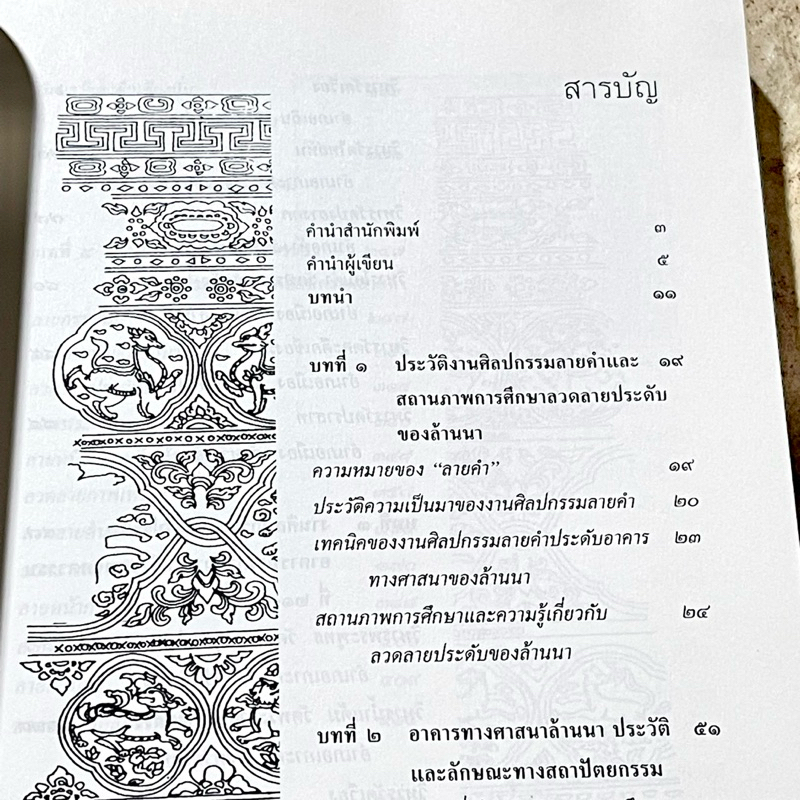 สารบัญ
คำนำสำนักพิมพ์ ๓
คำนำผู้เขียน ๕
บทนำ ๑๑
บทที่ ๑ ประวัติงานศิลปกรรมลายคำและ ๑๙
สถานภาพการศึกษาลวดลายประดับ
ของล้านนา
ความหมายของ “ลายคำ” ๑๙
ประวัติความเป็นมาของงานศิลปกรรมลายคำ ๒๐
เทคนิคของงานศิลปกรรมลายคำประดับอาคาร ๒๓
ทางศาสนาของล้านนา
สถานภาพการศึกษาและความรู้เกี่ยวกับ ๒๔
ลวดลายประดับของล้านนา
บทที่ ๒ อาคารทางศาสนาล้านนา ประวัติ ๕๑
และลักษณะทางสถาปัตยกรรม